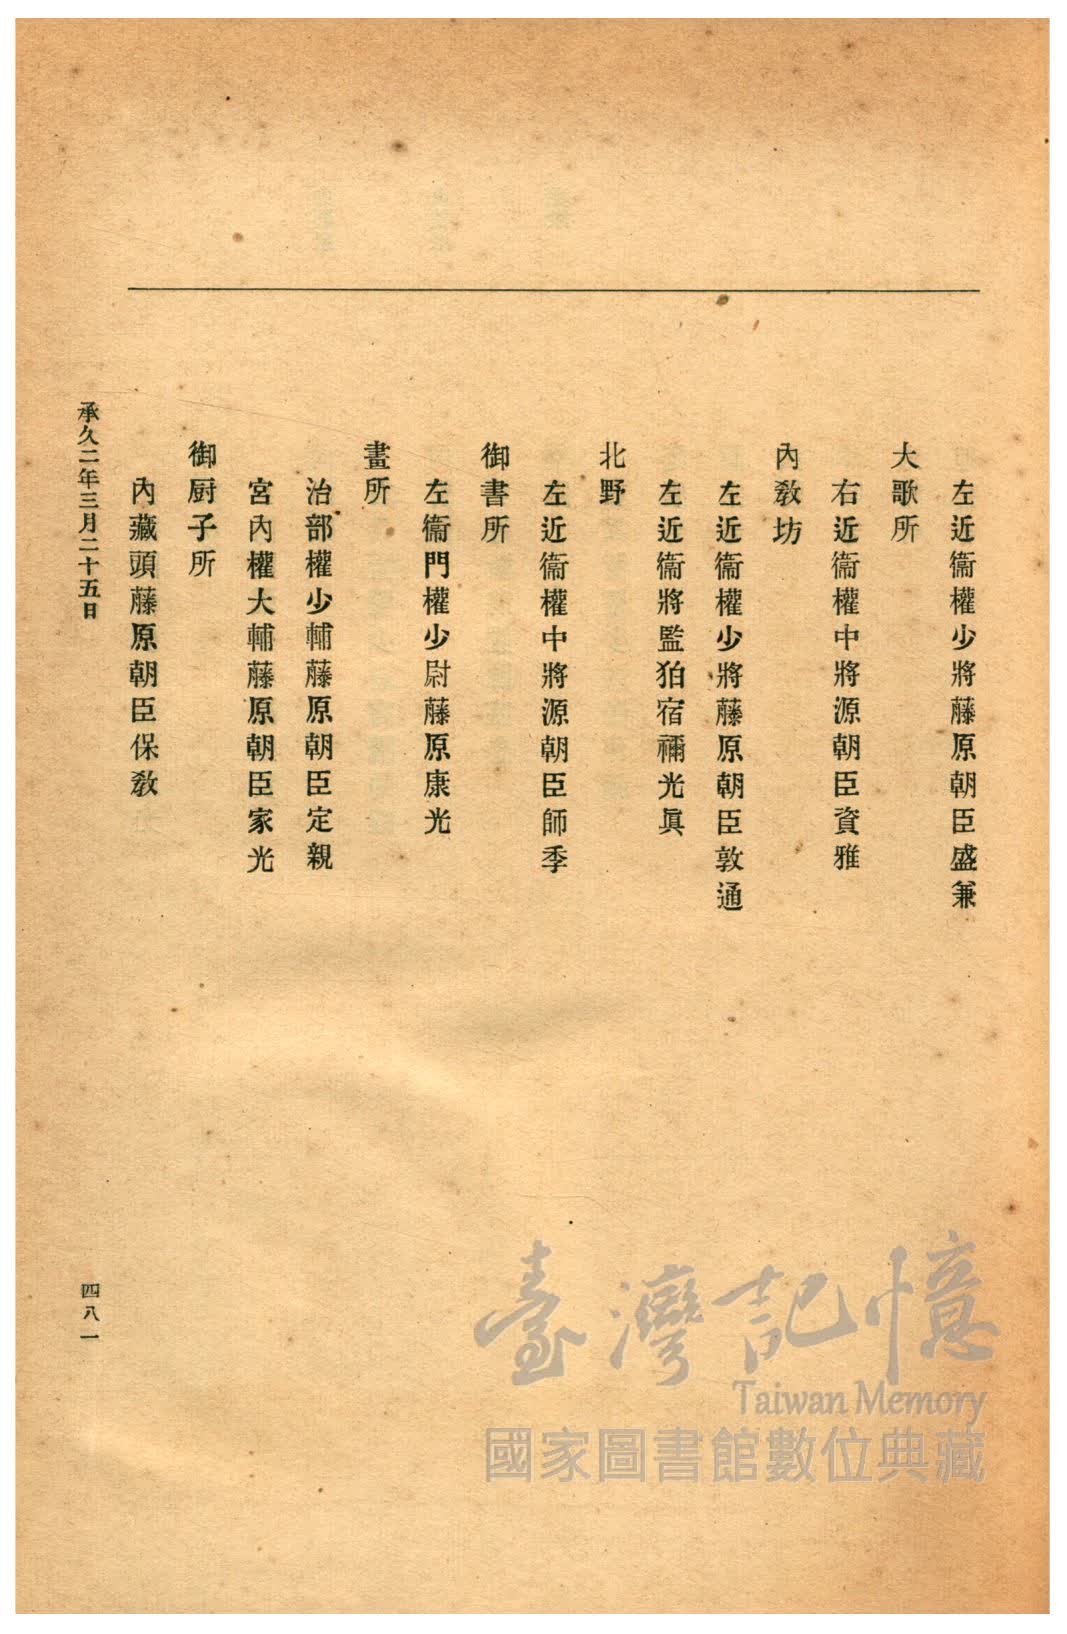 左近衞權少將藤原朝臣盛兼
大歌所
右近衞權中將源朝臣資雅
內敎坊
左近衞權少將藤原朝臣敦通
左近衞將監狛宿禰光眞
北野
左近衞權中將源朝臣師季
御書所
左衞門權少尉藤原康光
畫所
治部權少輔藤原朝臣定親
宮內權大輔藤原朝臣家光
御厨子所
內藏頭藤原朝臣保敎
承久二年三月二十五日
四八一
臺灣記憶
Taiwan Memory
國家圖書館數位典藏